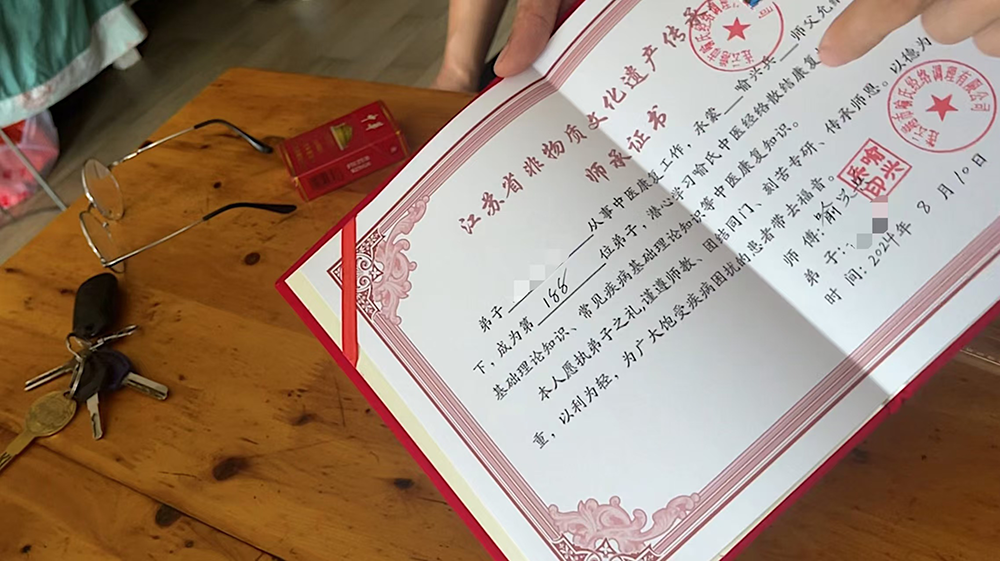 江苏省非物质文化遗产传承
师承证书
弟子 从事中医康复工作,承蒙 喻兴兵 师父允
下,成为第 188 位弟子,潜心学习喻氏中医经络散结康复
基础理论知识、常见疾病基础理论知识等中医康复知识。
本人愿执弟子之礼,谨遵师教、团结同门、刻苦专研、传承师恩。以德为
重,以利为轻,为广大饱受疾病困扰的患者带去福音。
师傅:喻兴兵
弟子:
时间:2024年8月10日